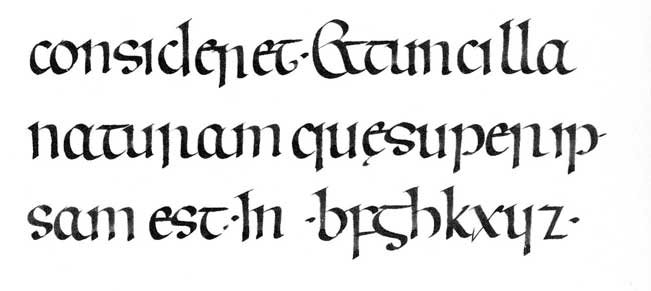 consideret·&tuncilla
naturam quęsuperip-
sam est·In ·bfghkxyz·